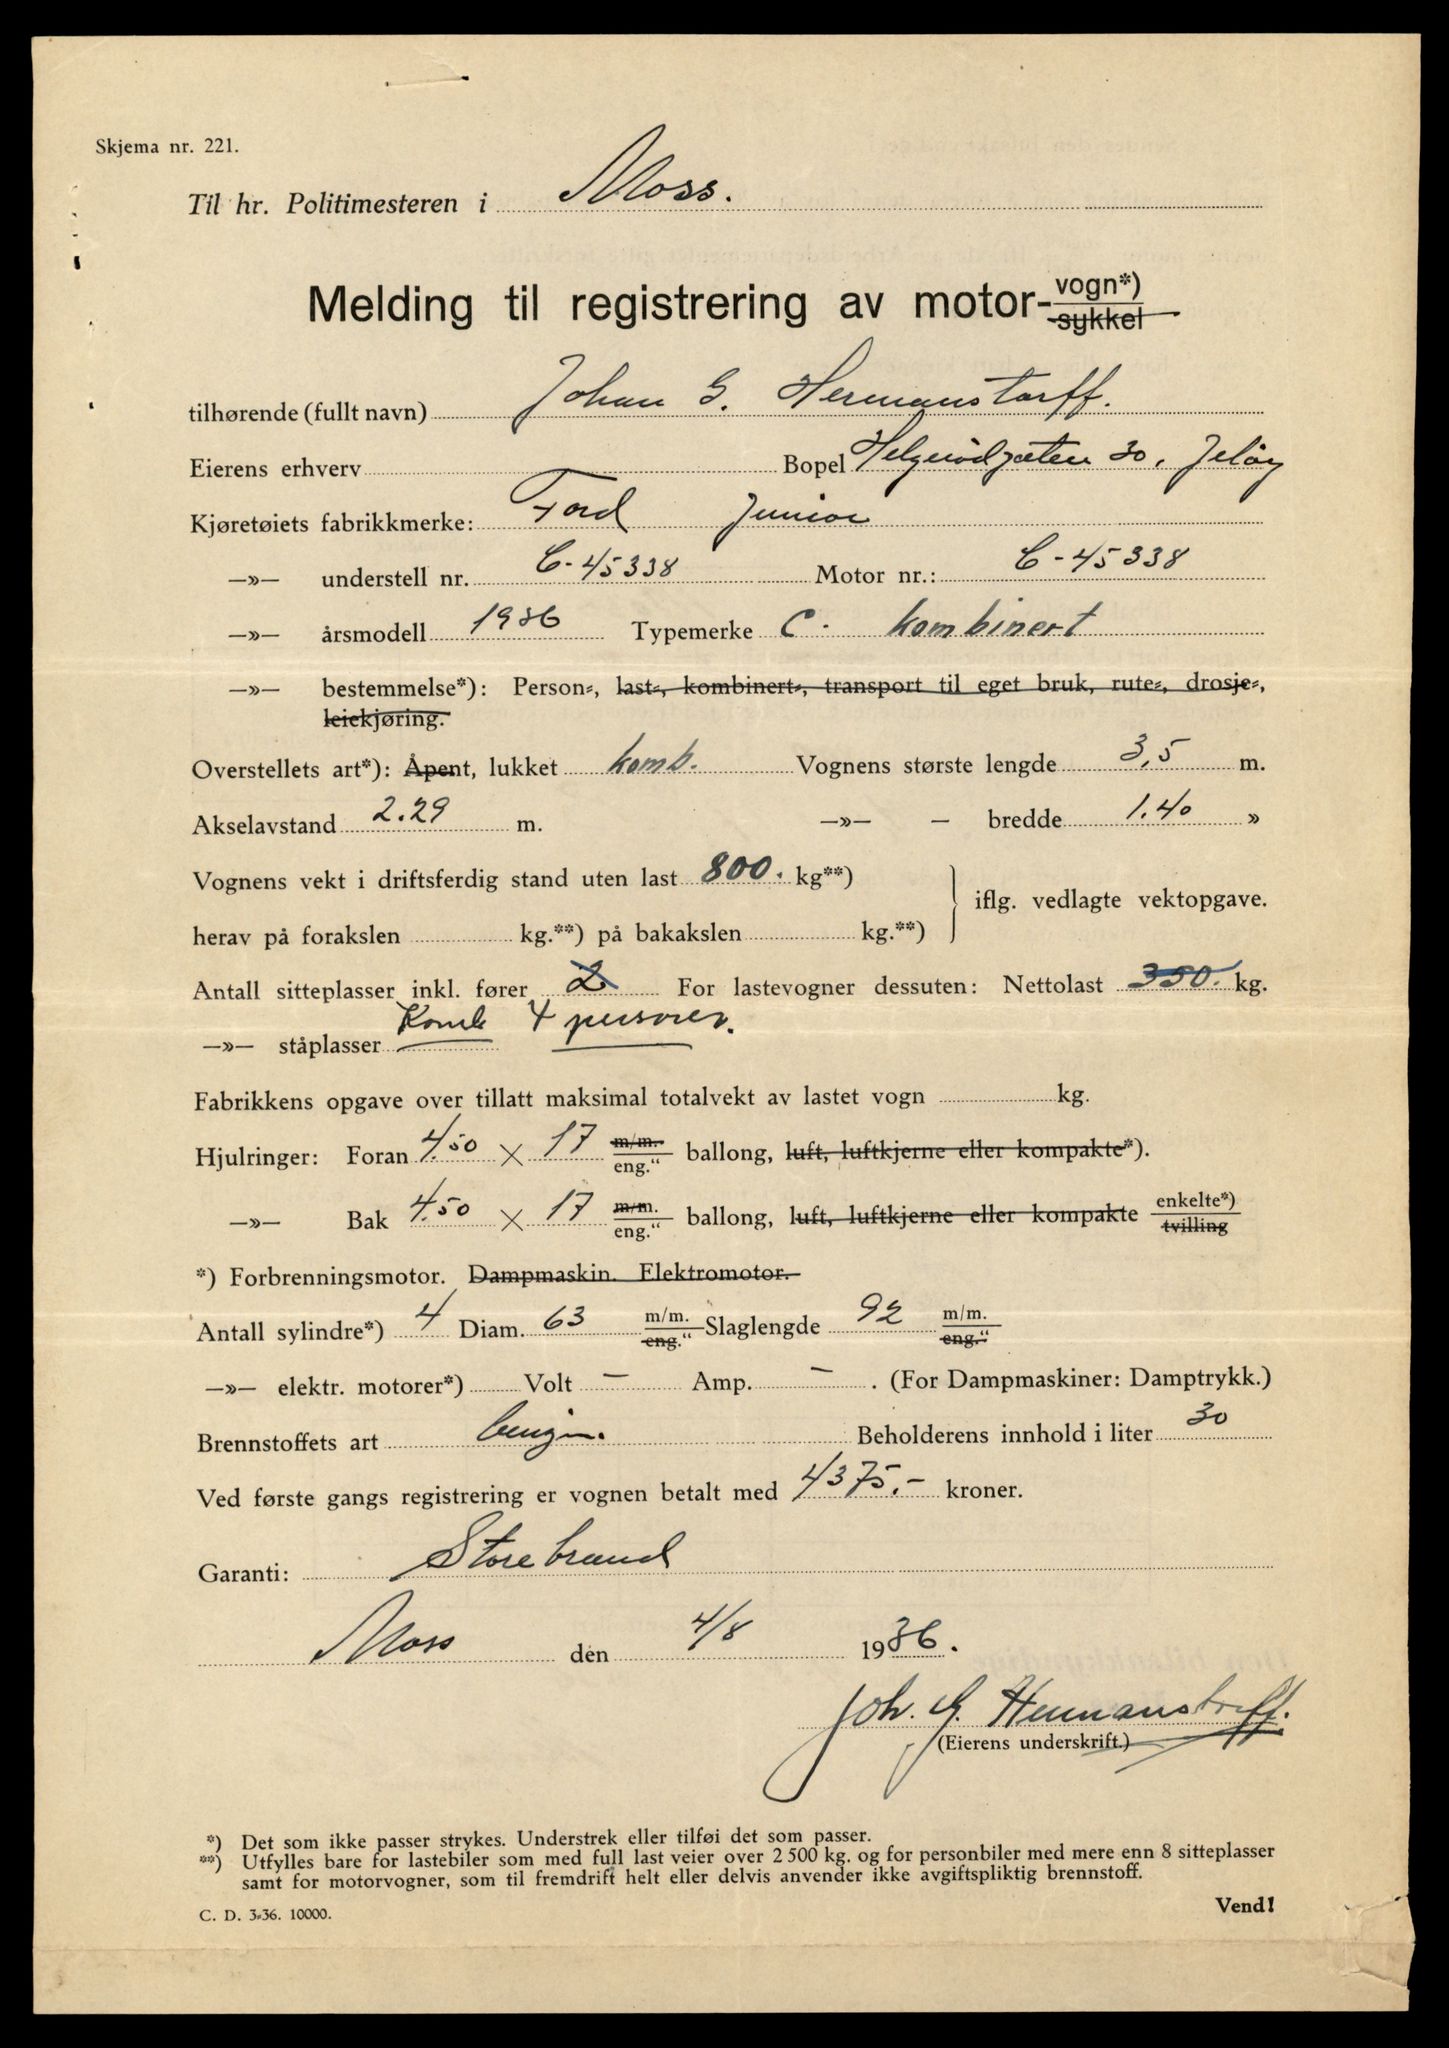 Skjema nr. 221.
Til hr. Politimesteren i Moss.
Melding til registrering av motor- vogn*) sykkel
tilhørende (fullt navn) Johan G. Hermanstorff.
Eierens erhverv Bopel Helgerødgaten 30, Jeløy
Kjøretøiets fabrikkmerke: Ford Junior
—»— understell nr. C-45338 Motor nr.: C-45338
—»— årsmodell 1936 Typemerke C. kombinert
—»— bestemmelse*): Person-, last-, kombinert-, transport til eget bruk, rute-, drosje-,
leiekjøring.
Overstellets art*): Åpent, lukket komb. Vognens største lengde 3,5 m.
Akselavstand 2.29 m. —»— — bredde 1.40 »
Vognens vekt i driftsferdig stand uten last 800. kg**)
iflg. vedlagte vektopgave.
herav på forakslen kg.**) på bakakslen kg.**)
Antall sitteplasser inkl. fører 2 For lastevogner dessuten: Nettolast 350. kg.
—»— ståplasser Komb 4 personer.
Fabrikkens opgave over tillatt maksimal totalvekt av lastet vogn kg.
Hjulringer: Foran 4.50 × 17 m/m. eng." ballong, luft, luftkjerne eller kompakte*).
—»— Bak 4.50 × 17 m/m. eng." ballong, luft, luftkjerne eller kompakte enkelte*) tvilling
*) Forbrenningsmotor. Dampmaskin. Elektromotor.
Antall sylindre*) 4 Diam. 63 m/m. eng." Slaglengde 92 m/m. eng."
—»— elektr. motorer*) Volt — Amp. — . (For Dampmaskiner: Damptrykk.)
Brennstoffets art bensin. Beholderens innhold i liter 30
Ved første gangs registrering er vognen betalt med 4375.- kroner.
Garanti: Storebrand
Moss den 4/8 1936.
Joh. G. Hermanstorff.
(Eierens underskrift.)
*) Det som ikke passer strykes. Understrek eller tilføi det som passer.
**) Utfylles bare for lastebiler som med full last veier over 2 500 kg. og for personbiler med mere enn 8 sitteplasser
samt for motorvogner, som til fremdrift helt eller delvis anvender ikke avgiftspliktig brennstoff.
C. D. 3-36. 10000.
Vend!